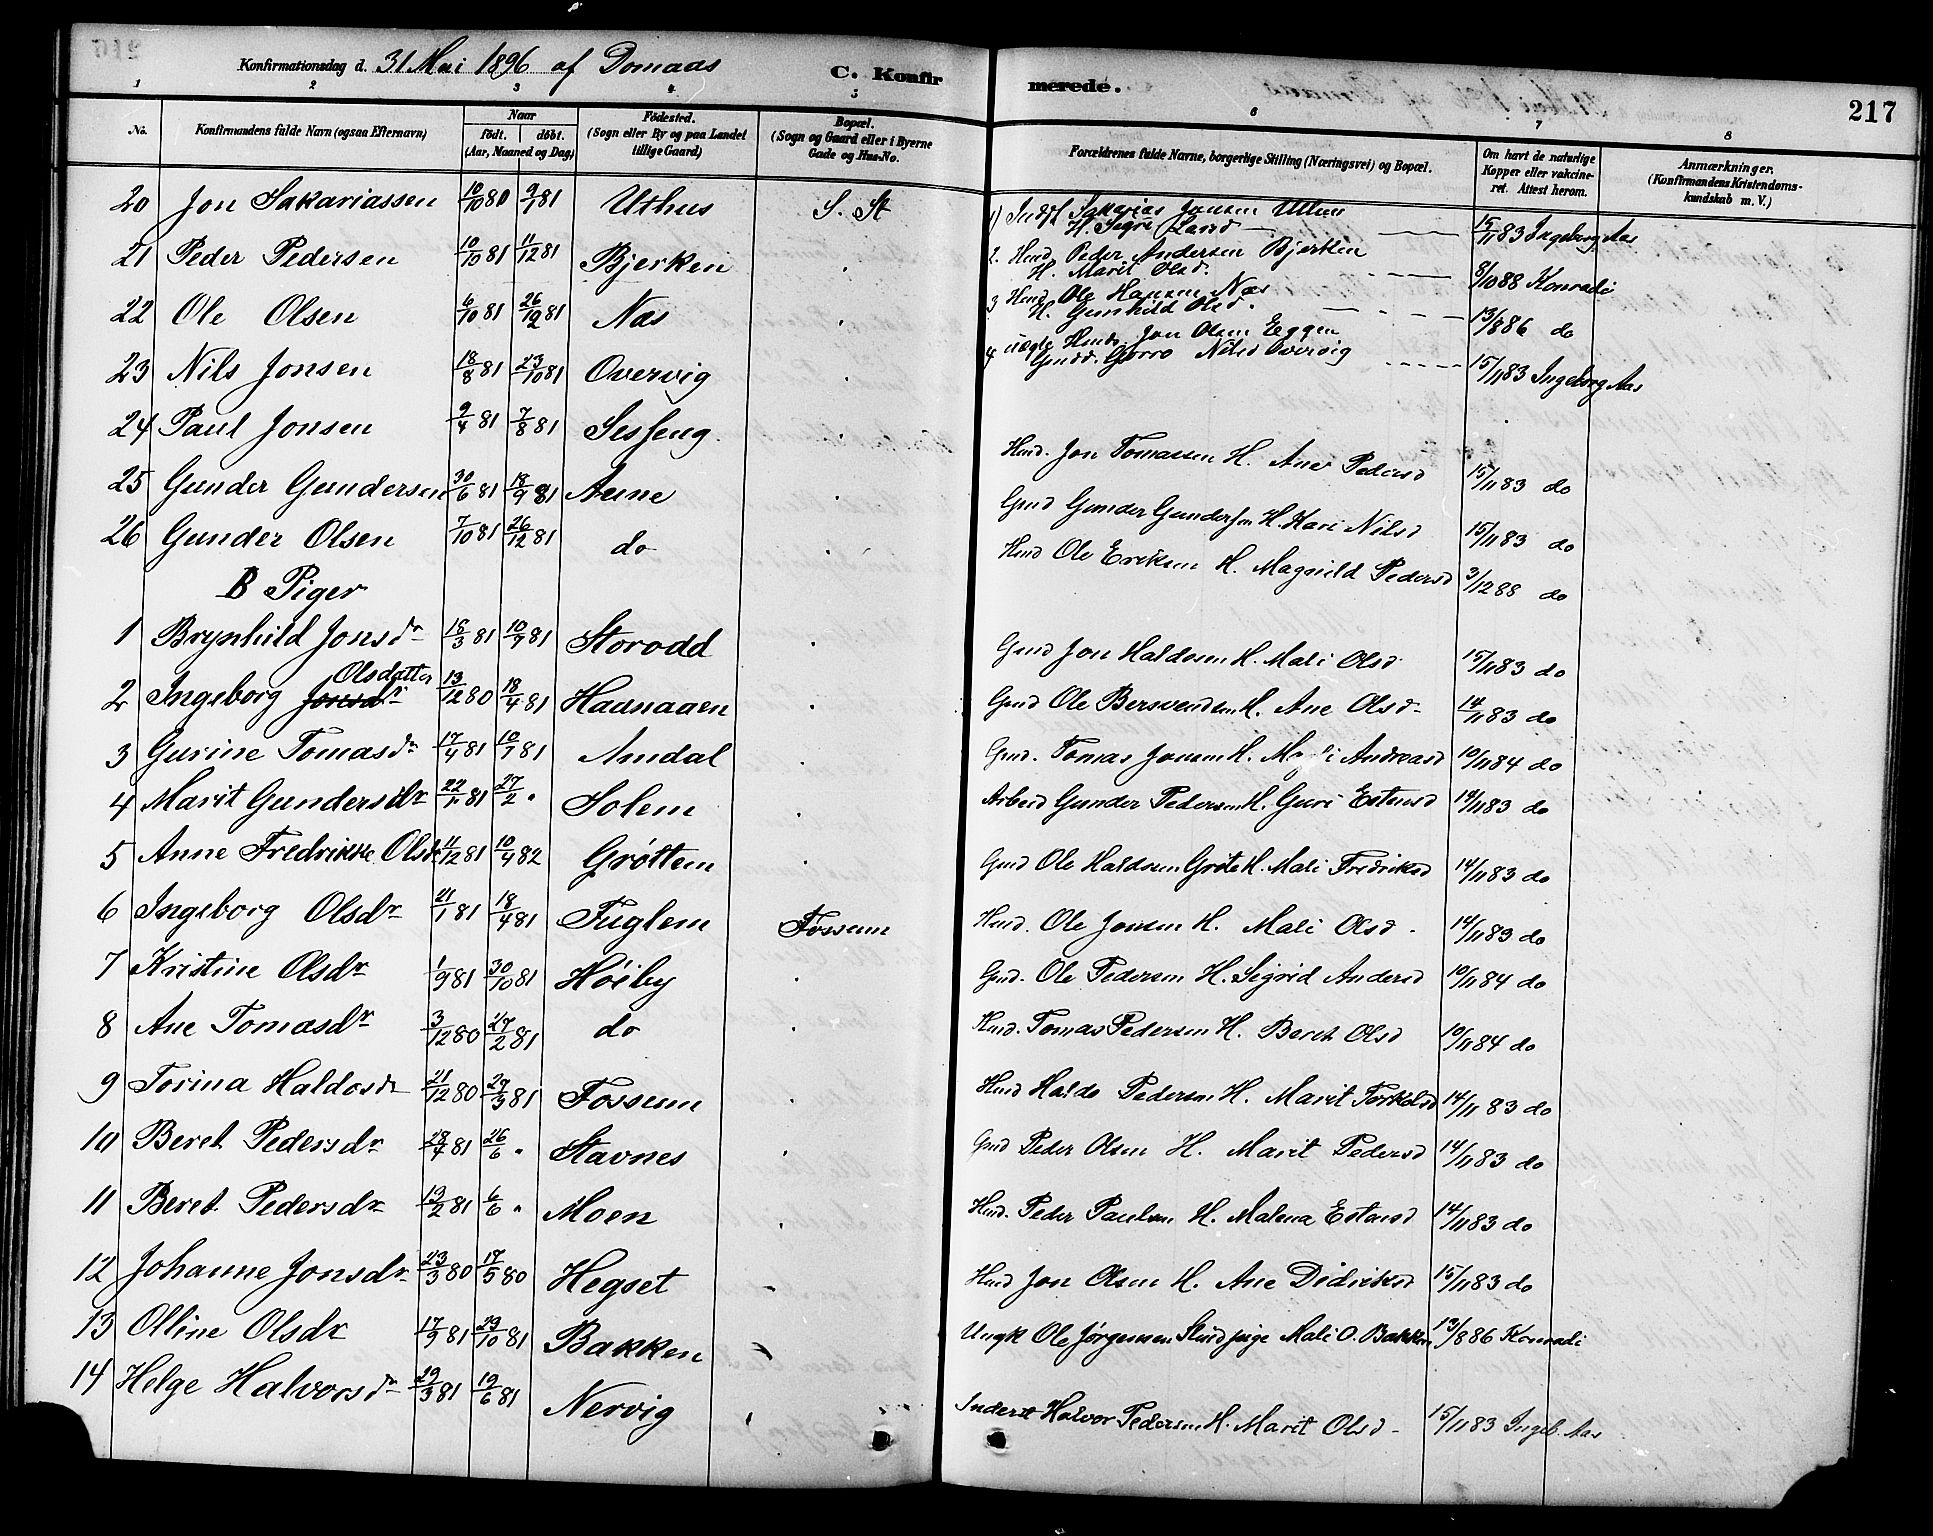 Konfirmationsdag d. 31 Mai 1896 af Domaas C. Konfirmerede. 217
1 2 3 4 5 6 7 8
No. Konfirmandens fulde Navn (ogsaa Efternavn) Naar født. døbt. (Aar, Maaned og Dag) Fødested. (Sogn eller By og paa Landet tillige Gaard) Bopæl. (Sogn og Gaard eller i Byerne Gade og Hus-No. Forældrenes fulde Navne, borgerlige Stilling (Næringsvei) og Bopæl. Om havt de naturlige Kopper eller vakcineret. Attest herom. Anmærkninger. (Konfirmandens Kristendomskundskab m. V.)
20 Jon Sakariassen 10/10 80 9/1 81 Uthus S. St 1) Indst Sakarias Jonsen H. Segri 15/11 83 Ingeborg Aas
21 Peder Pedersen 10/10 81 11/12 81 Bjerken 2. Hmd Peder Andersen Bjerken H. Marit Olsd. 8/10 88 Konradi
22 Ole Olsen 6/10 81 26/12 81 Næs 3 Hmd Ole Hansen Næs H. Gunhild Olsd. 13/8 86 do
23 Nils Jonsen 18/8 81 23/10 81 Overvig 4 uægte Hmd. Jon Olsen Eggen Gmdd. Gorro Nilsd Overvig 15/11 83 Ingeborg Aas
24 Paul Jonsen 9/4 81 7/8 81 Sesseng Hmd. Jon Tomassen H. Ane Pedersd 15/11 83 do
25 Gunder Gundersen 30/6 81 18/9 81 Aune Gmd Gunder Gundersen H. Kari Nilsd 15/11 83 do
26 Gunder Olsen 7/10 81 26/12 81 do Hmd Ole Eriksen H. Magnild Pedersd 3/12 88 do
B Piger
1 Brynhild Jonsdr 18/3 81 10/7 81 Storodd Gmd Jon Haldosen H. Mali Olsd. 15/11 83 do
2 Ingeborg Jonsdr Olsdatter 13/12 80 18/4 81 Haunaaen Gmd Ole Bersvendsen H. Ane Olsd. 14/11 83 do
3 Gurine Tomasdr 17/4 81 10/7 81 Amdal Gmd. Tomas Jonsen H. Andreasd 10/11 84 do
4 Marit Gundersdr 22/1 81 27/2 " Solem Arbeid Gunder Pedersen H. Guri Estensd 14/11 83 do
5 Anne Fredrikke Olsdr 11/12 81 10/4 82 Grøttem Gmd Ole Haldosen Grøte H. Mali Fredriksd 14/11 83 do
6 Ingeborg Olsdr 21/1 81 18/4 81 Fuglem Fossum Hmd. Ole Jonsen H. Mali Olsd. 14/11 83 do
7 Kristine Olsdr 1/9 81 30/10 81 Høiby Gmd. Ole Pedersen H. Sigrid Andersd 10/11 84 do
8 Ane Tomasdr 3/12 80 27/2 81 do Hmd. Tomas Pedersen H. Beret Olsd 10/11 84 do
9 Torina Haldosdr 21/12 80 27/3 81 Fossum Hmd Haldo Pedersen H. Marit Torkelsd 14/11 83 do
10 Beret Pedersdr 28/4 81 26/6 " Stavnes Gmd Peder Olsen H. Marit Pedersd 14/11 83 do
11 Beret Pedersdr 13/2 81 6/6 " Moen Hmd. Peder Paulsen H. Malena Estensd 14/11 83 do
12 Johanne Jonsdr 23/3 80 17/5 80 Hegset Hmd Jon Olsen H. Ane Didriksd 15/11 83 do
13 Olline Olsdr 17/9 81 23/10 81 Bakken Ungk Ole Jørgensen pige Mali O. Bakken 13/8 86 Konradi
14 Helge Halvorsdr 29/3 81 19/6 81 Nervig Inderst Halvor Pedersen H. Marit Olsd. 15/11 83 Ingeb. Aas